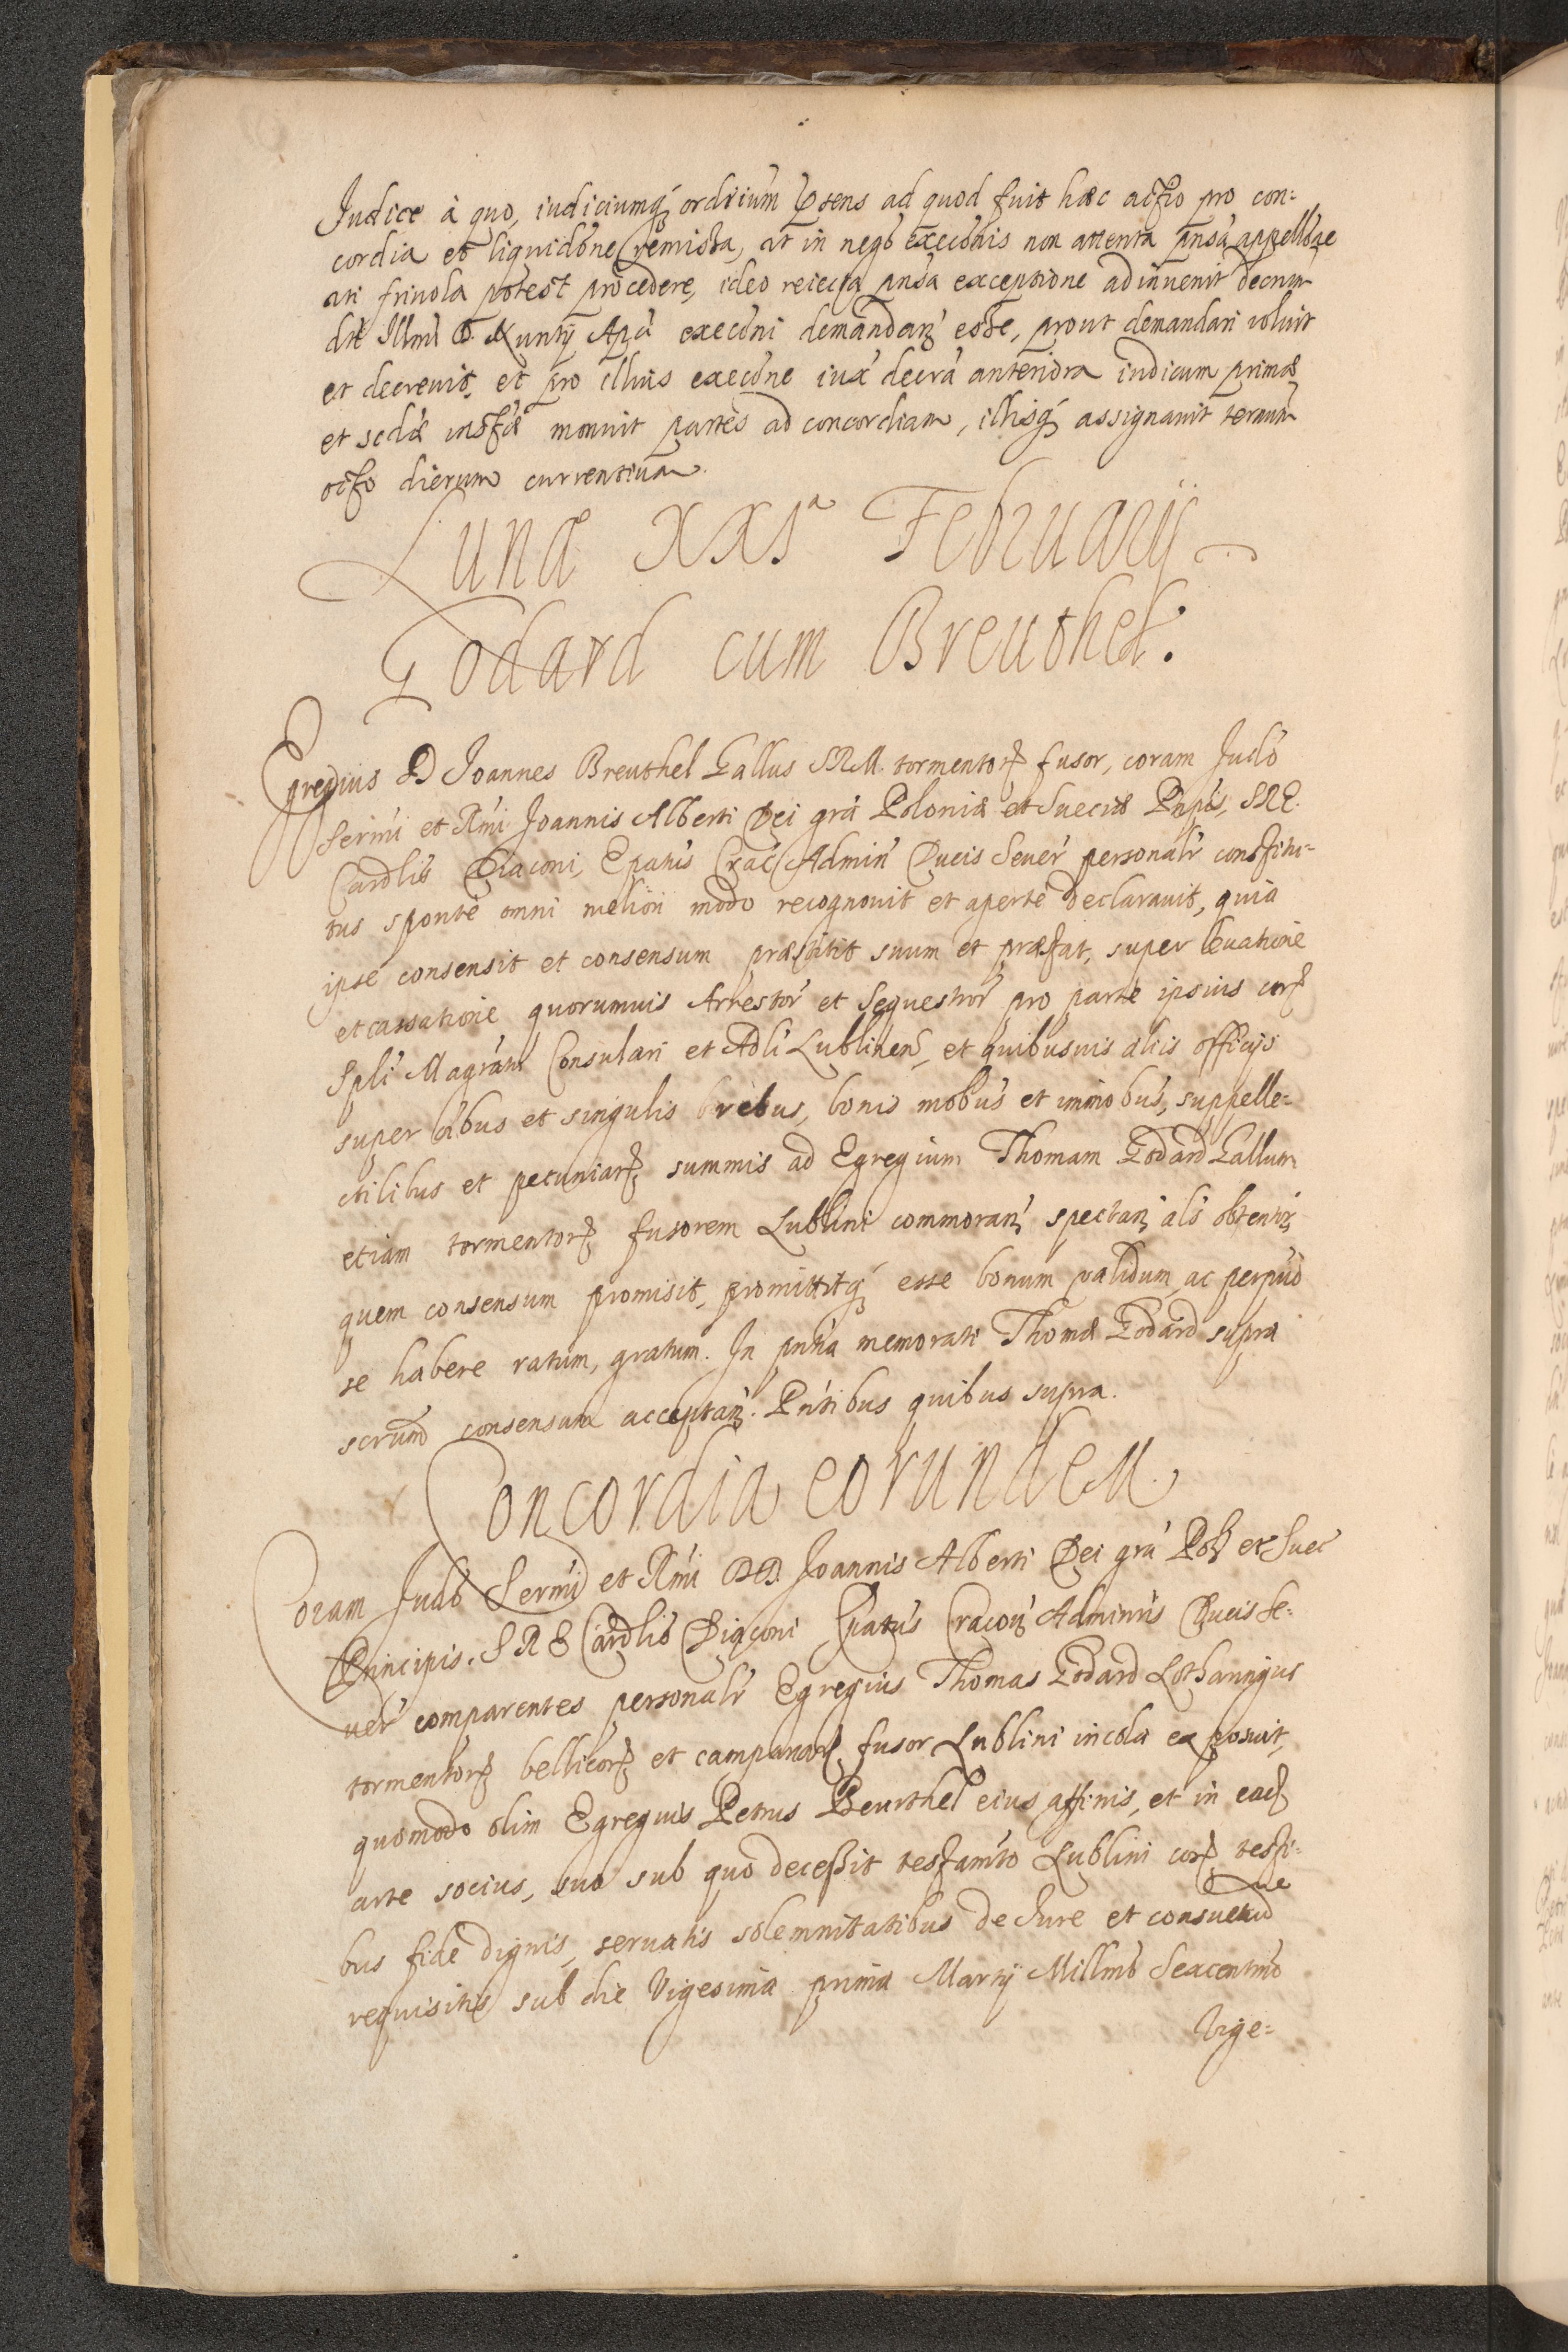 Judice à quo, iudiciumq́ ordrium ptens ad quod fuit hæc actio pro con:
cordia et liquidone remissa, ut in nego execonis non attenta pnsa appellõne
uti friuola potest procedere, ideo reiecta pnsa exceptione adinuenit decrum
die Illmi D. Nuntij Apci execoni demandan esse, prout demandari voluit
et decreuit, et pro illius execone iuxa decra anteriora iudicum primæ
et sedæ instæ monuit partes ad concordiam, illisq́ assignauit termum
octo dierum currentium.
Lunæ XXIª February
Godard cum Breuthel.
Egregius D Joannes Breuthel Gallus SRM. tormentor fusor, coram Judo
Sermi et Rmi Joannis Alberti Dei gra Poloniæ et Sueciæ Pnpis, SRE.
Cardlis Diaconi, Epatus Crac Admin Ducis Seuer personalr constitu-
tus sponte omni meliori modo recognouit et aperte declarauit, quia
ipse consensit et consensum præstitit suum et præstat, super leuatione
et cassatione quorumuis Arrestor et Sequestror pro parte ipsius cor
Spli Magratu Consulari et Adli Lublinen, et quibusuis aliis officijs
super oibus et singulis rebus, bonis mobus et immobus, suppelle:
ctilibus et pecuniar summis ad Egregium Thomam Godard Gallum
etiam tormentor fusorem Lublini commoran spectan als obtentis
quem consensum promisit, promittitq́ esse bonum validum, ac perpuo
se habere ratum, gratum. In pntia memorati Thomæ Godard supra
scrum consensum acceptan. Pntibus quibus supra.
Concordia eorundem.
Coram Judo Sermi et Rmi DD. Joannis Alberti Dei gra Pol et Suec
Principis. S R E Cardlis Diaconi Epatus Cracou Adminris Ducis Se:
uer comparentes personalr Egregius Thomas Godard Lotharingus
tormentor bellicor et campanar fusor Lublini incola exposuit,
quomodo olim Egregius Petrus Beurthel eius affinis, et in ead
arte socius, suo sub quo decessit testamto Lublini cor testi:
bus fide dignis, seruatis solemnitatibus de Jure et consuetud
ne
requisitis sub die Vigesima prima Martij Millmo Sexcentmo
Vige=